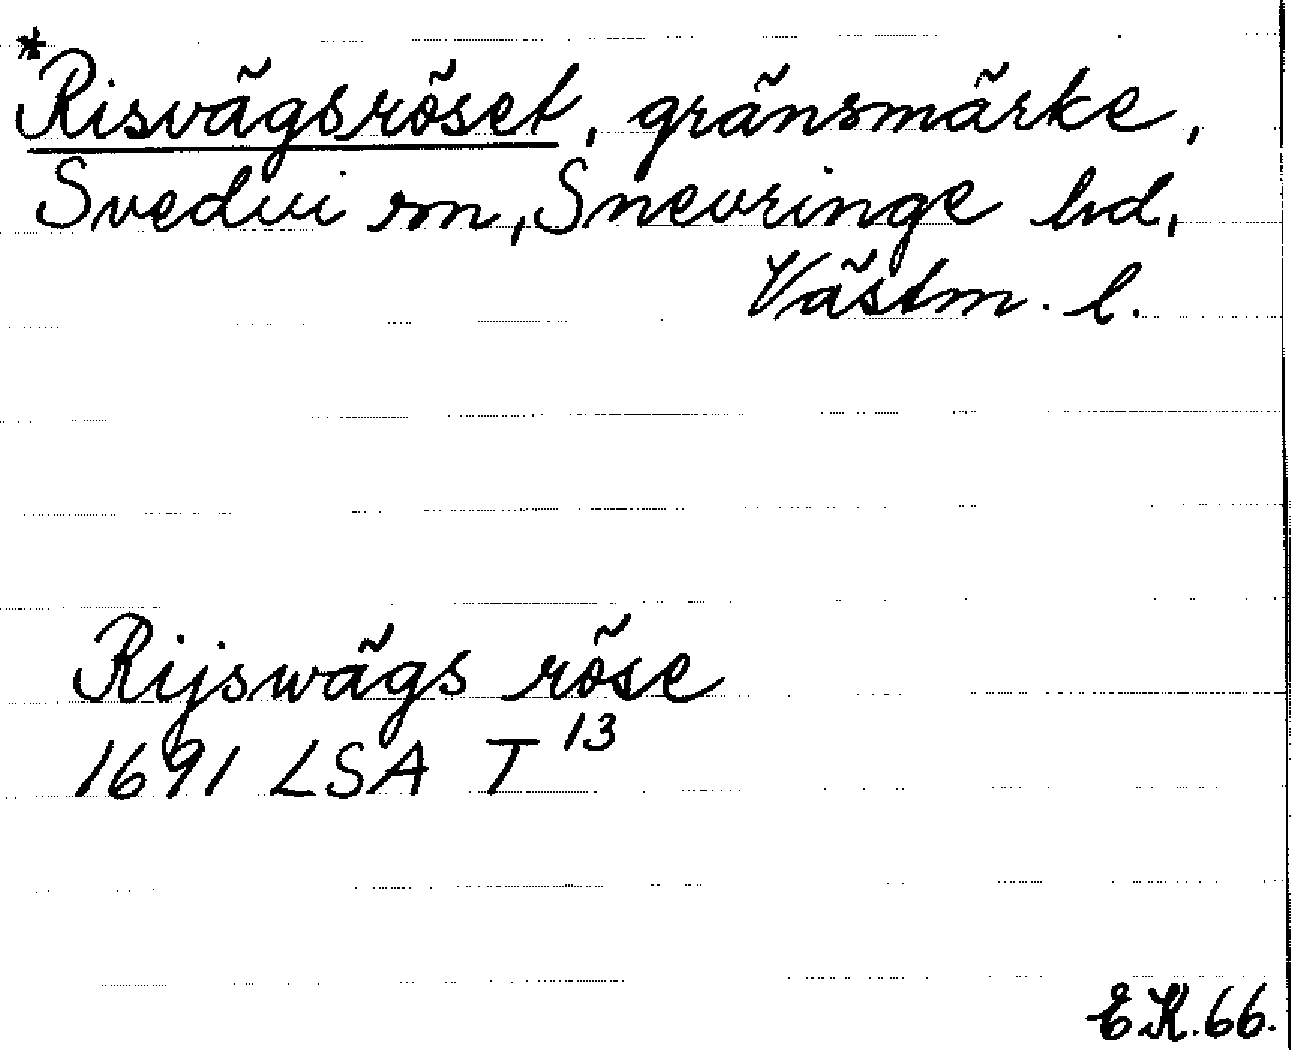 *Risvägsröset, gränsmärke,
Svedvi sn, Snevringe hd,
Västm. l.
Rijswägs röse
1691 LSA T 13
E.K. 66.